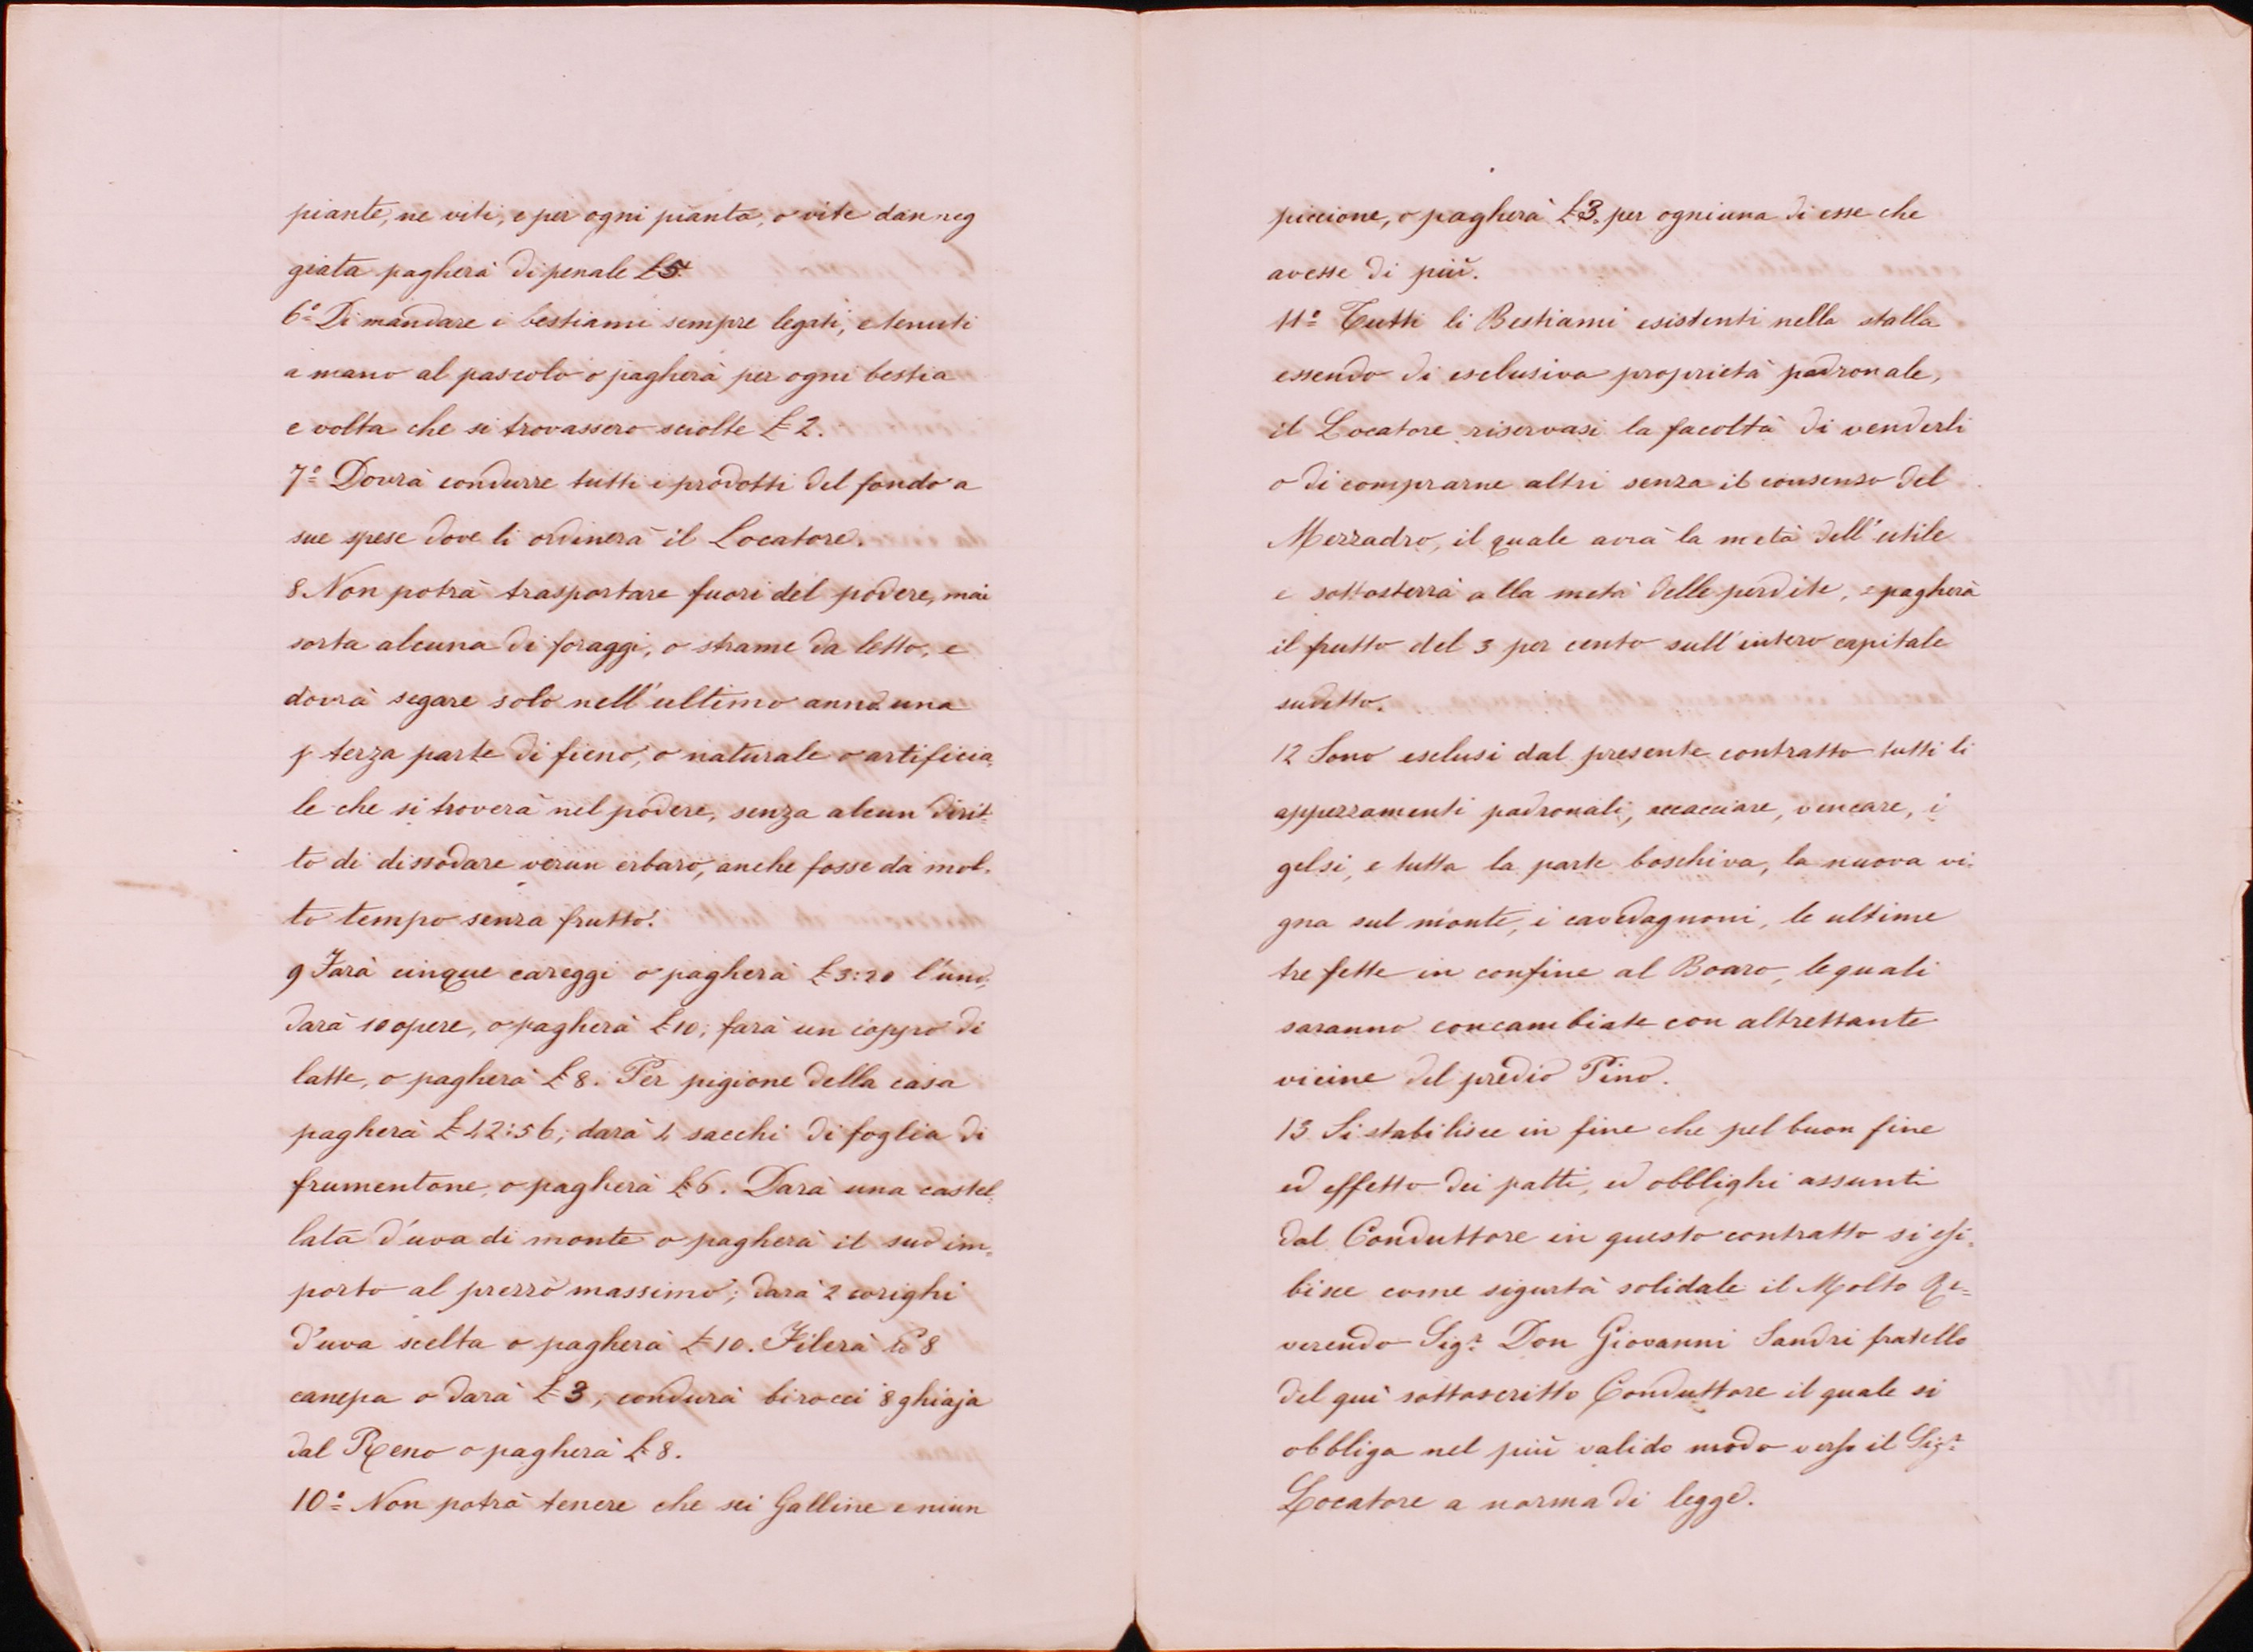 piante, ne viti, e per ogni pianta, o vite danneg
giata pagherà di penale £5.
6º Di mandare i bestiami sempre legati, e tenuti
a mano al pascolo o pagherà per ogni bestia
e volta che si trovassero sciolte £2.
7º Dovrà condurre tutti i prodotti del fondo a
sue spese dove li ordinerà il Locatore.
8 Non potrà trasportare fuori del podere, mai
sorta alcuna di foraggi, o strame da letto, e
dovrà segare solo nell'ultimo anno una
terza parte di fieno, o naturale o artificia
le che si troverà nel podere, senza alcun dirit-
to di dissodare verun erbaro, anche fosse da mol-
to tempo senza frutto.
9 Farà cinque careggi o pagherà £3:20 l'uno,
darà 10 opere, o pagherà £10, farà un coppo di
latte, o pagherà £8. Per pigione della casa
pagherà £42:56, darà 4 sacchi di foglia di
frumentone, o pagherà £6. Darà una castel-
lata d'uva di monte o pagherà il suo im-
porto al prezzo massimo; darà 2 corighi
d'uva scelta o pagherà £10. Filerà 8
canepa o darà £3, condurà birocci 8 ghiaja
dal Reno o pagherà £8.
10º Non potrà tenere che sei Galline e niun
piccione, o pagherà £3. per ogniuna di esse che
avesse di più.
11º Tutti li Bestiami esistenti nella stalla
essendo di esclusiva proprietà padronale,
il Locatore riservasi la facoltà di venderli
o di comprarne altri senza il consenso del
Mezzadro, il quale avrà la metà dell'utile
e sottosterrà alla metà delle perdite, e pagherà
il frutto del 3 per cento sull'intero capitale
sudetto.
12 Sono esclusi dal presente contratto tutti li
appezzamenti padronali, accacciare, vencare, i
gelsi, e tutta la parte boschiva, la nuova vi-
gna sul monte, i cavedagnoni, le ultime
tre fette in confine al Boaro, le quali
saranno concambiate con altrettante
vicine del predio Pino.
13 Si stabilisce in fine che pel buon fine
ed effetto dei patti, ed obblighi assunti
dal Conduttore in questo contratto si esi-
bisce come sigurtà solidale il Molto Re-
verendo Sigr. Don Giovanni Sandri fratello
del quì sottoscritto Conduttore il quale si
obbliga nel più valido modo verso il Sigr.
Locatore a norma di legge.